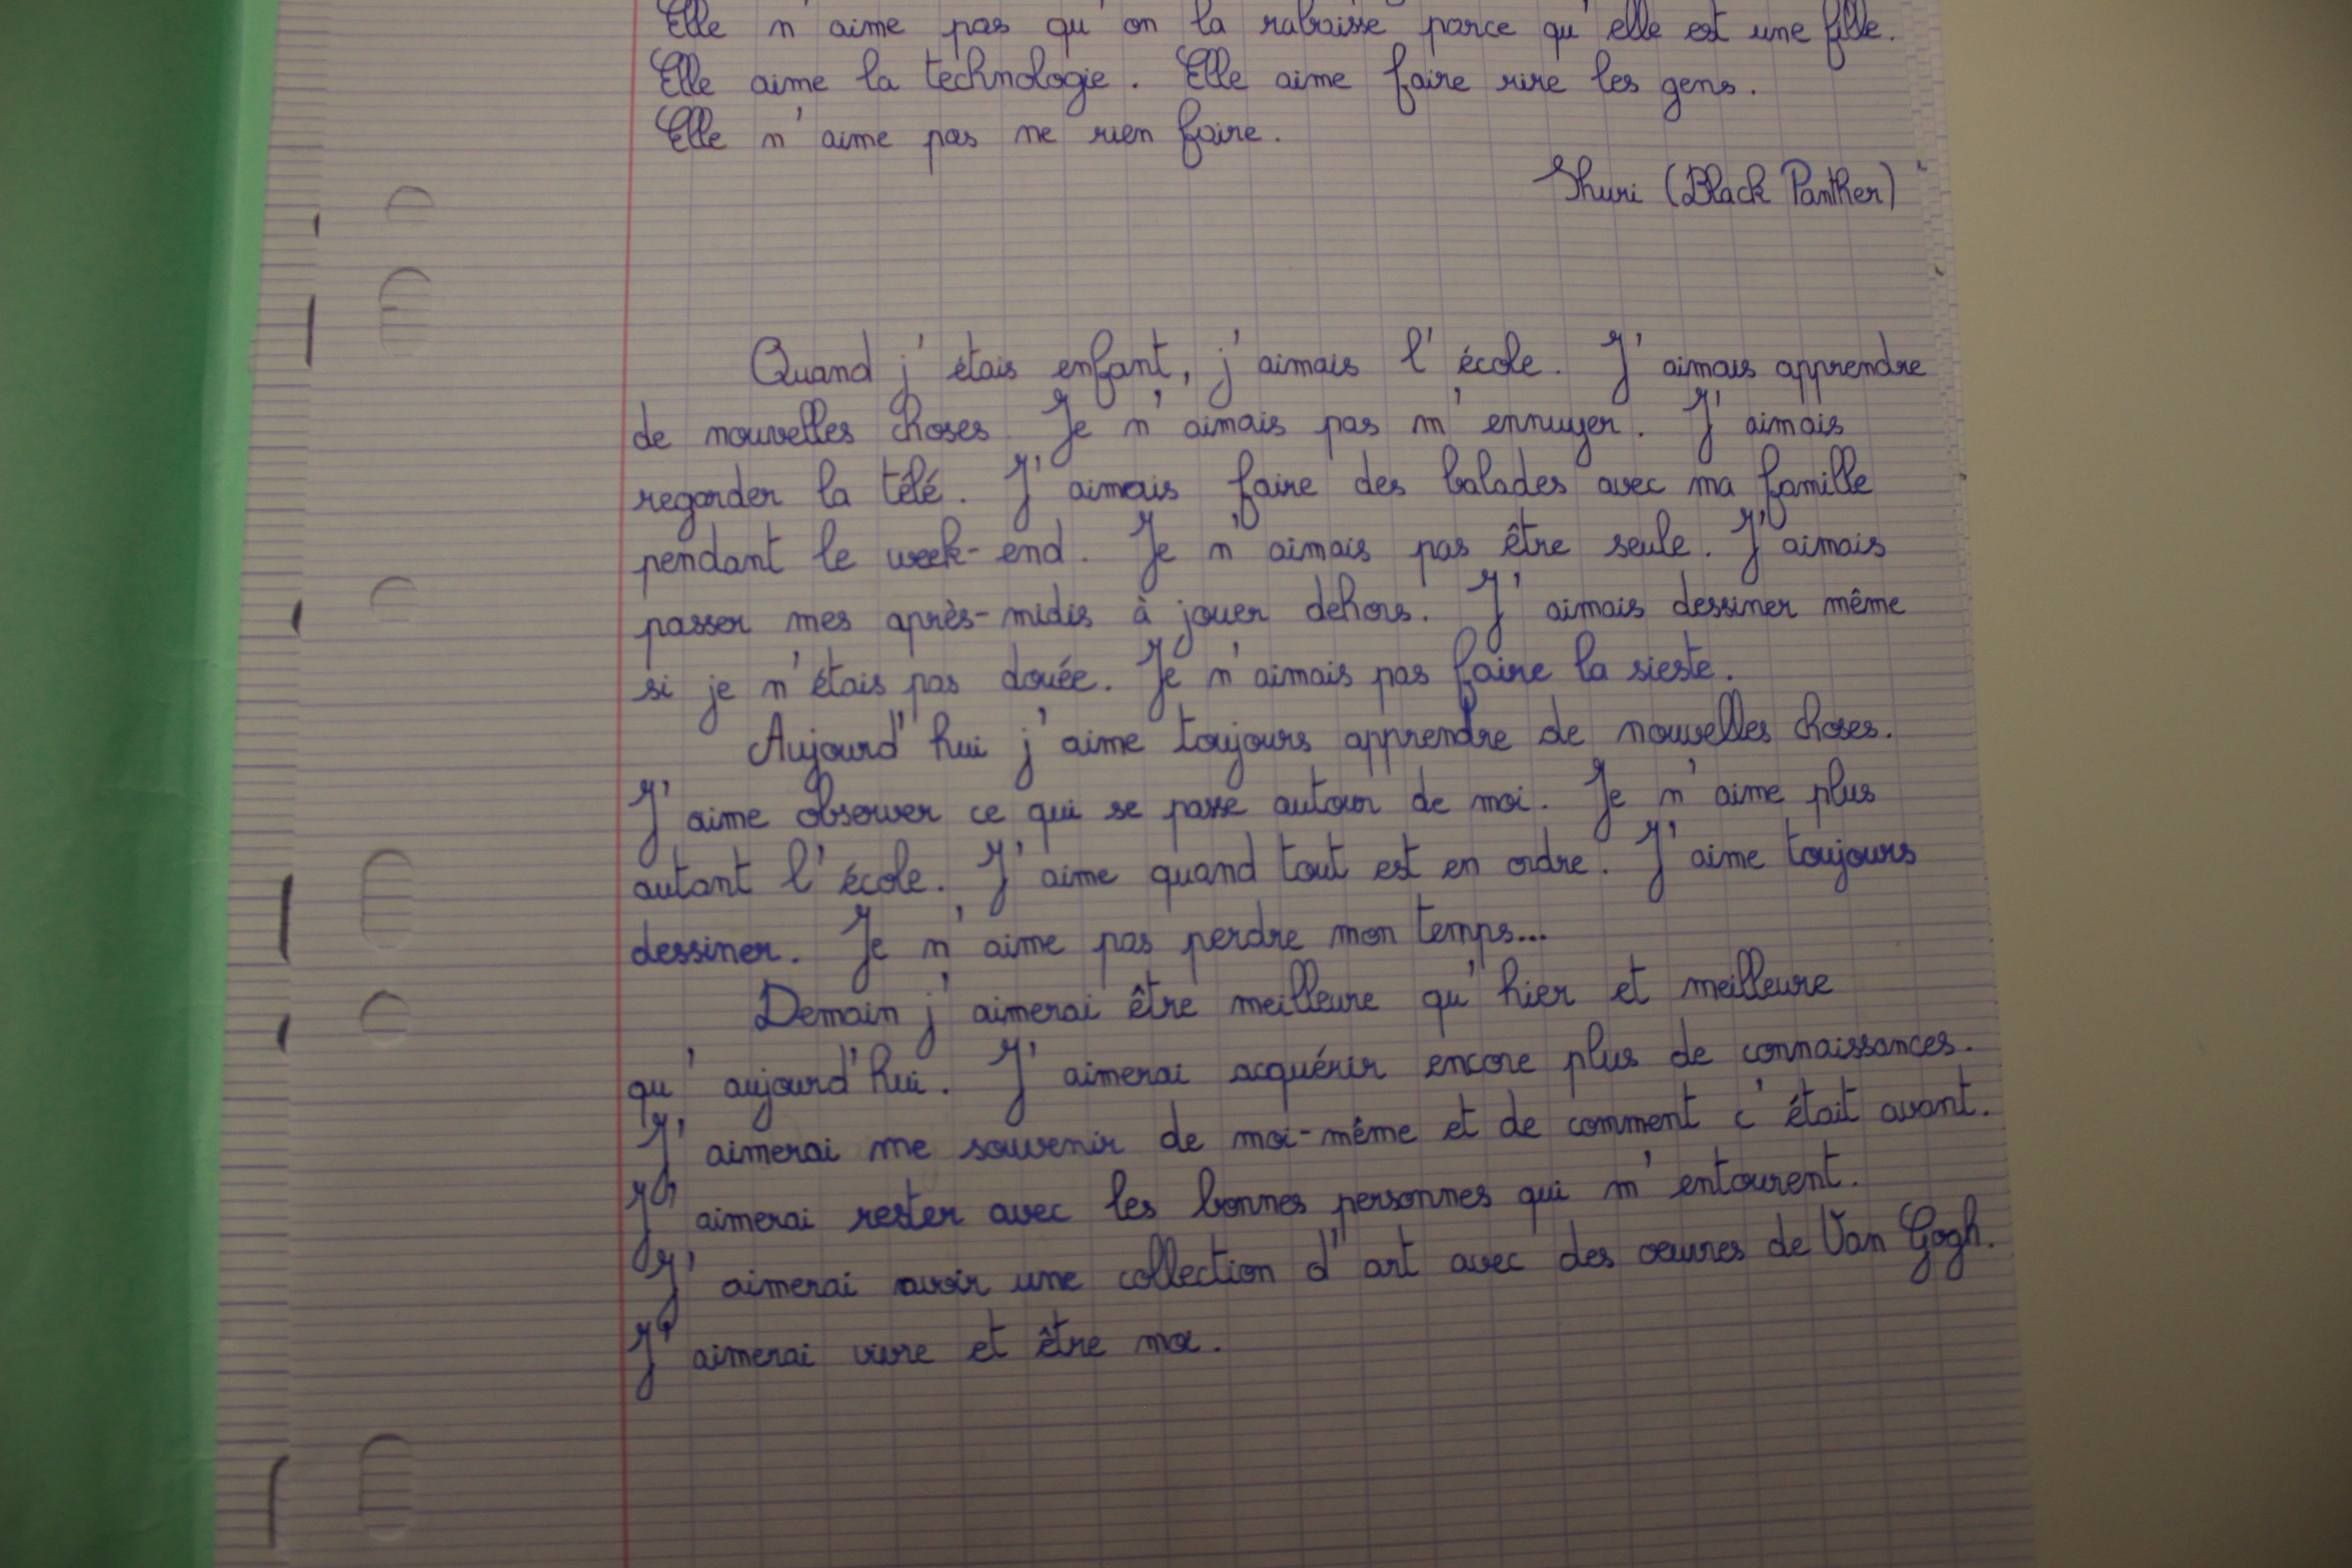 Elle n'aime pas qu'on la rabaisse parce qu'elle est une fille.
Elle aime la technologie. Elle aime faire rire les gens.
Elle n'aime pas ne rien faire.
Shuri (Black Panther)
Quand j'étais enfant, j'aimais l'école. J'aimais apprendre
de nouvelles choses. Je n'aimais pas m'ennuyer. J'aimais
regarder la télé. J'aimais faire des balades avec ma famille
pendant le week-end. Je n'aimais pas être seule. J'aimais
passer mes après-midis à jouer dehors. J'aimais dessiner même
si je n'étais pas douée. Je n'aimais pas faire la sieste.
Aujourd'hui j'aime toujours apprendre de nouvelles choses.
J'aime observer ce qui se passe autour de moi. Je n'aime plus
autant l'école. J'aime quand tout est en ordre. J'aime toujours
dessiner. Je n'aime pas perdre mon temps...
Demain j'aimerai être meilleure qu'hier et meilleure
qu'aujourd'hui. J'aimerai acquérir encore plus de connaissances.
J'aimerai me souvenir de moi-même et de comment c'était avant.
J'aimerai rester avec les bonnes personnes qui m'entourent.
J'aimerai avoir une collection d'art avec des oeuvres de Van Gogh.
J'aimerai vivre et être moi.